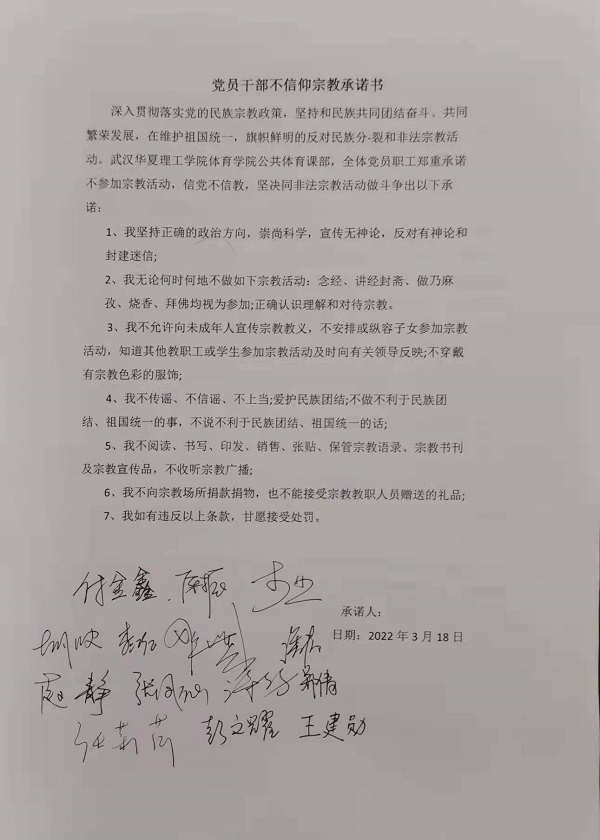 党员干部不信仰宗教承诺书
深入贯彻落实党的民族宗教政策，坚持和民族共同团结奋斗、共同
繁荣发展，在维护祖国统一，旗帜鲜明的反对民族分-裂和非法宗教活
动。武汉华夏理工学院体育学院公共体育课部，全体党员职工郑重承诺
不参加宗教活动，信党不信教，坚决同非法宗教活动做斗争出以下承
诺：
1、我坚持正确的政治方向，崇尚科学，宣传无神论，反对有神论和
封建迷信;
2、我无论何时何地不做如下宗教活动：念经、讲经封斋、做乃麻
孜、烧香、拜佛均视为参加;正确认识理解和对待宗教。
3、我不允许向未成年人宣传宗教教义，不安排或纵容子女参加宗教
活动，知道其他教职工或学生参加宗教活动及时向有关领导反映;不穿戴
有宗教色彩的服饰;
4、我不传谣、不信谣、不上当;爱护民族团结;不做不利于民族团
结、祖国统一的事，不说不利于民族团结、祖国统一的话;
5、我不阅读、书写、印发、销售、张贴、保管宗教语录、宗教书刊
及宗教宣传品，不收听宗教广播;
6、我不向宗教场所捐款捐物，也不能接受宗教教职人员赠送的礼品;
7、我如有违反以上条款，甘愿接受处罚。
付金鑫
承诺人：
日期：2022 年 3 月 18 日
赵静
彭文耀 王建勋